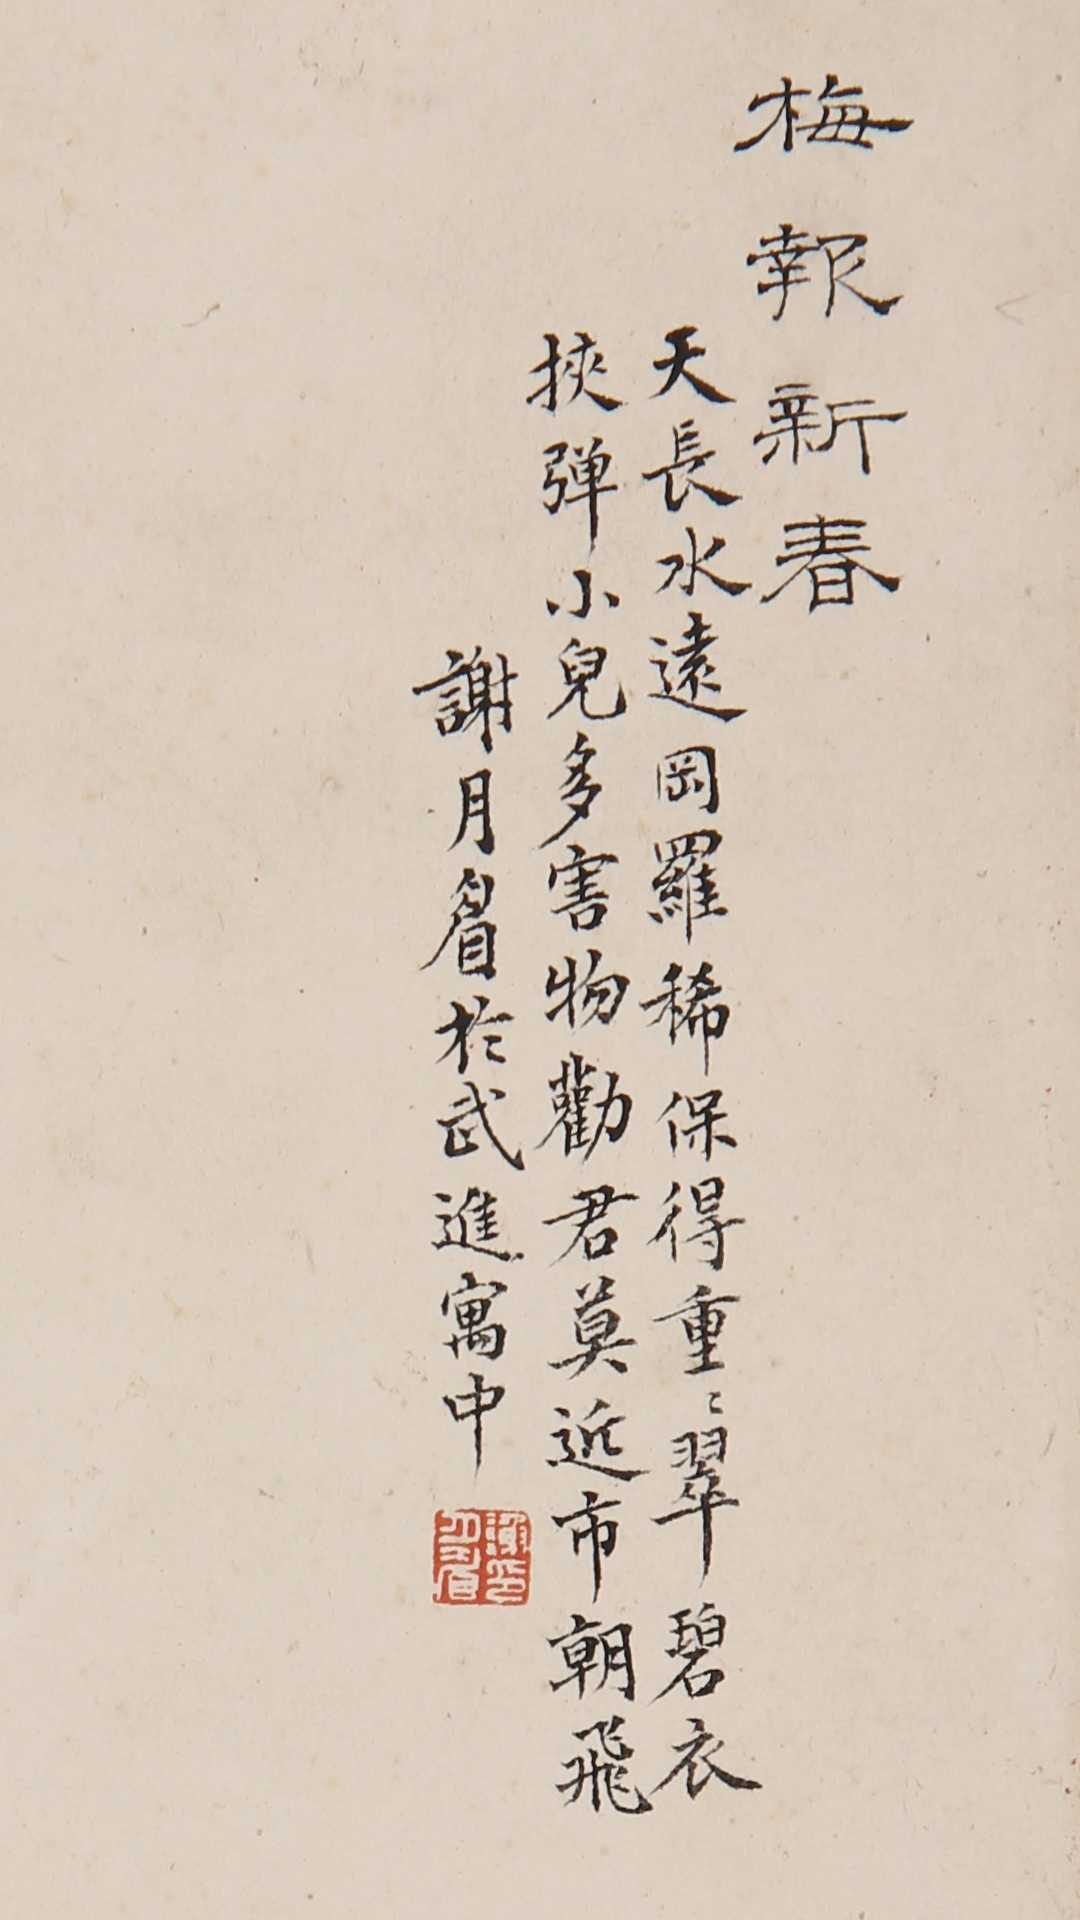 梅報新春
天長水遠罔羅稀保得重〻翠碧衣
挾弹小兒多害物勸君莫近市朝飛
謝月眉於武進寓中
謝月眉印